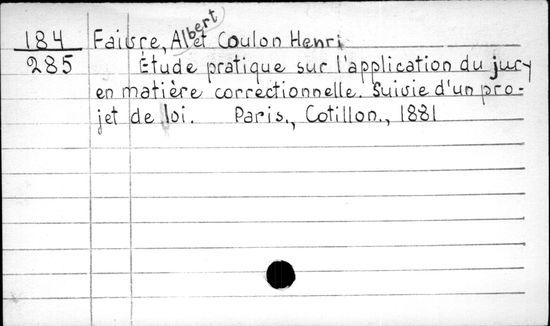 184 Faivre, Albert et Coulon Henri
285 Étude pratique sur l'application du jury
en matière correctionnelle. Suivie d'un pro-
jet de loi. Paris., Cotillon., 1881